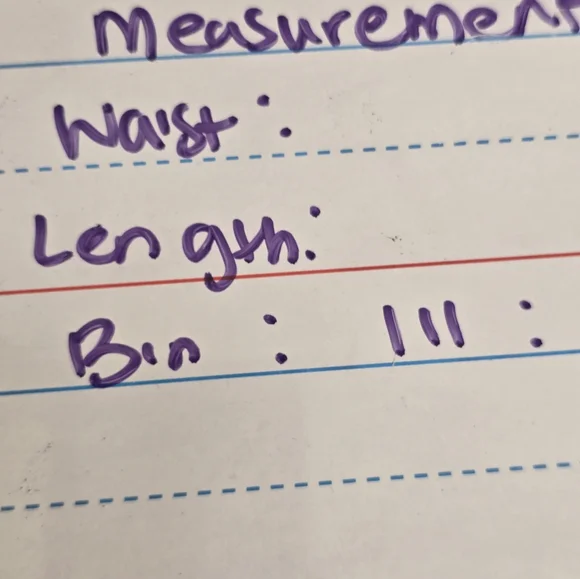 Measuremen
Waist:
Length:
Bin : 111 :